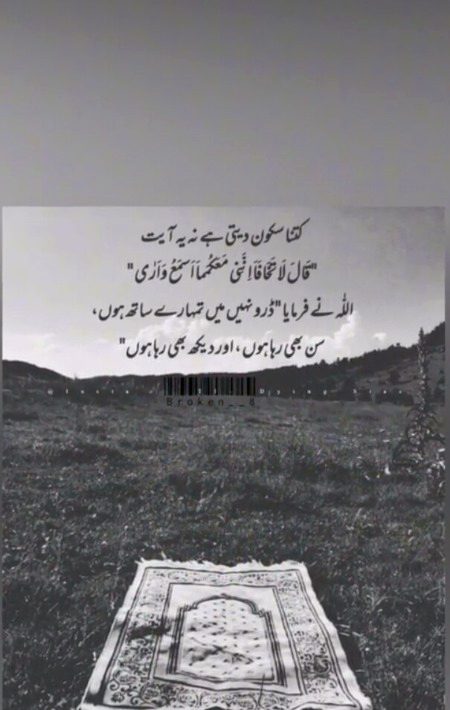 کتنا سکون دیتی ہے نہ یہ آیت
"قَالَ لَا تَخَافَآ اِنَّنِیْ مَعَکُمَا اَسمَعُ وَ اَرٰی"
اللہ نے فرمایا "ڈرو نہیں میں تمہارے ساتھ ہوں،
سن بھی رہا ہوں، اور دیکھ بھی رہا ہوں"
Broken__8